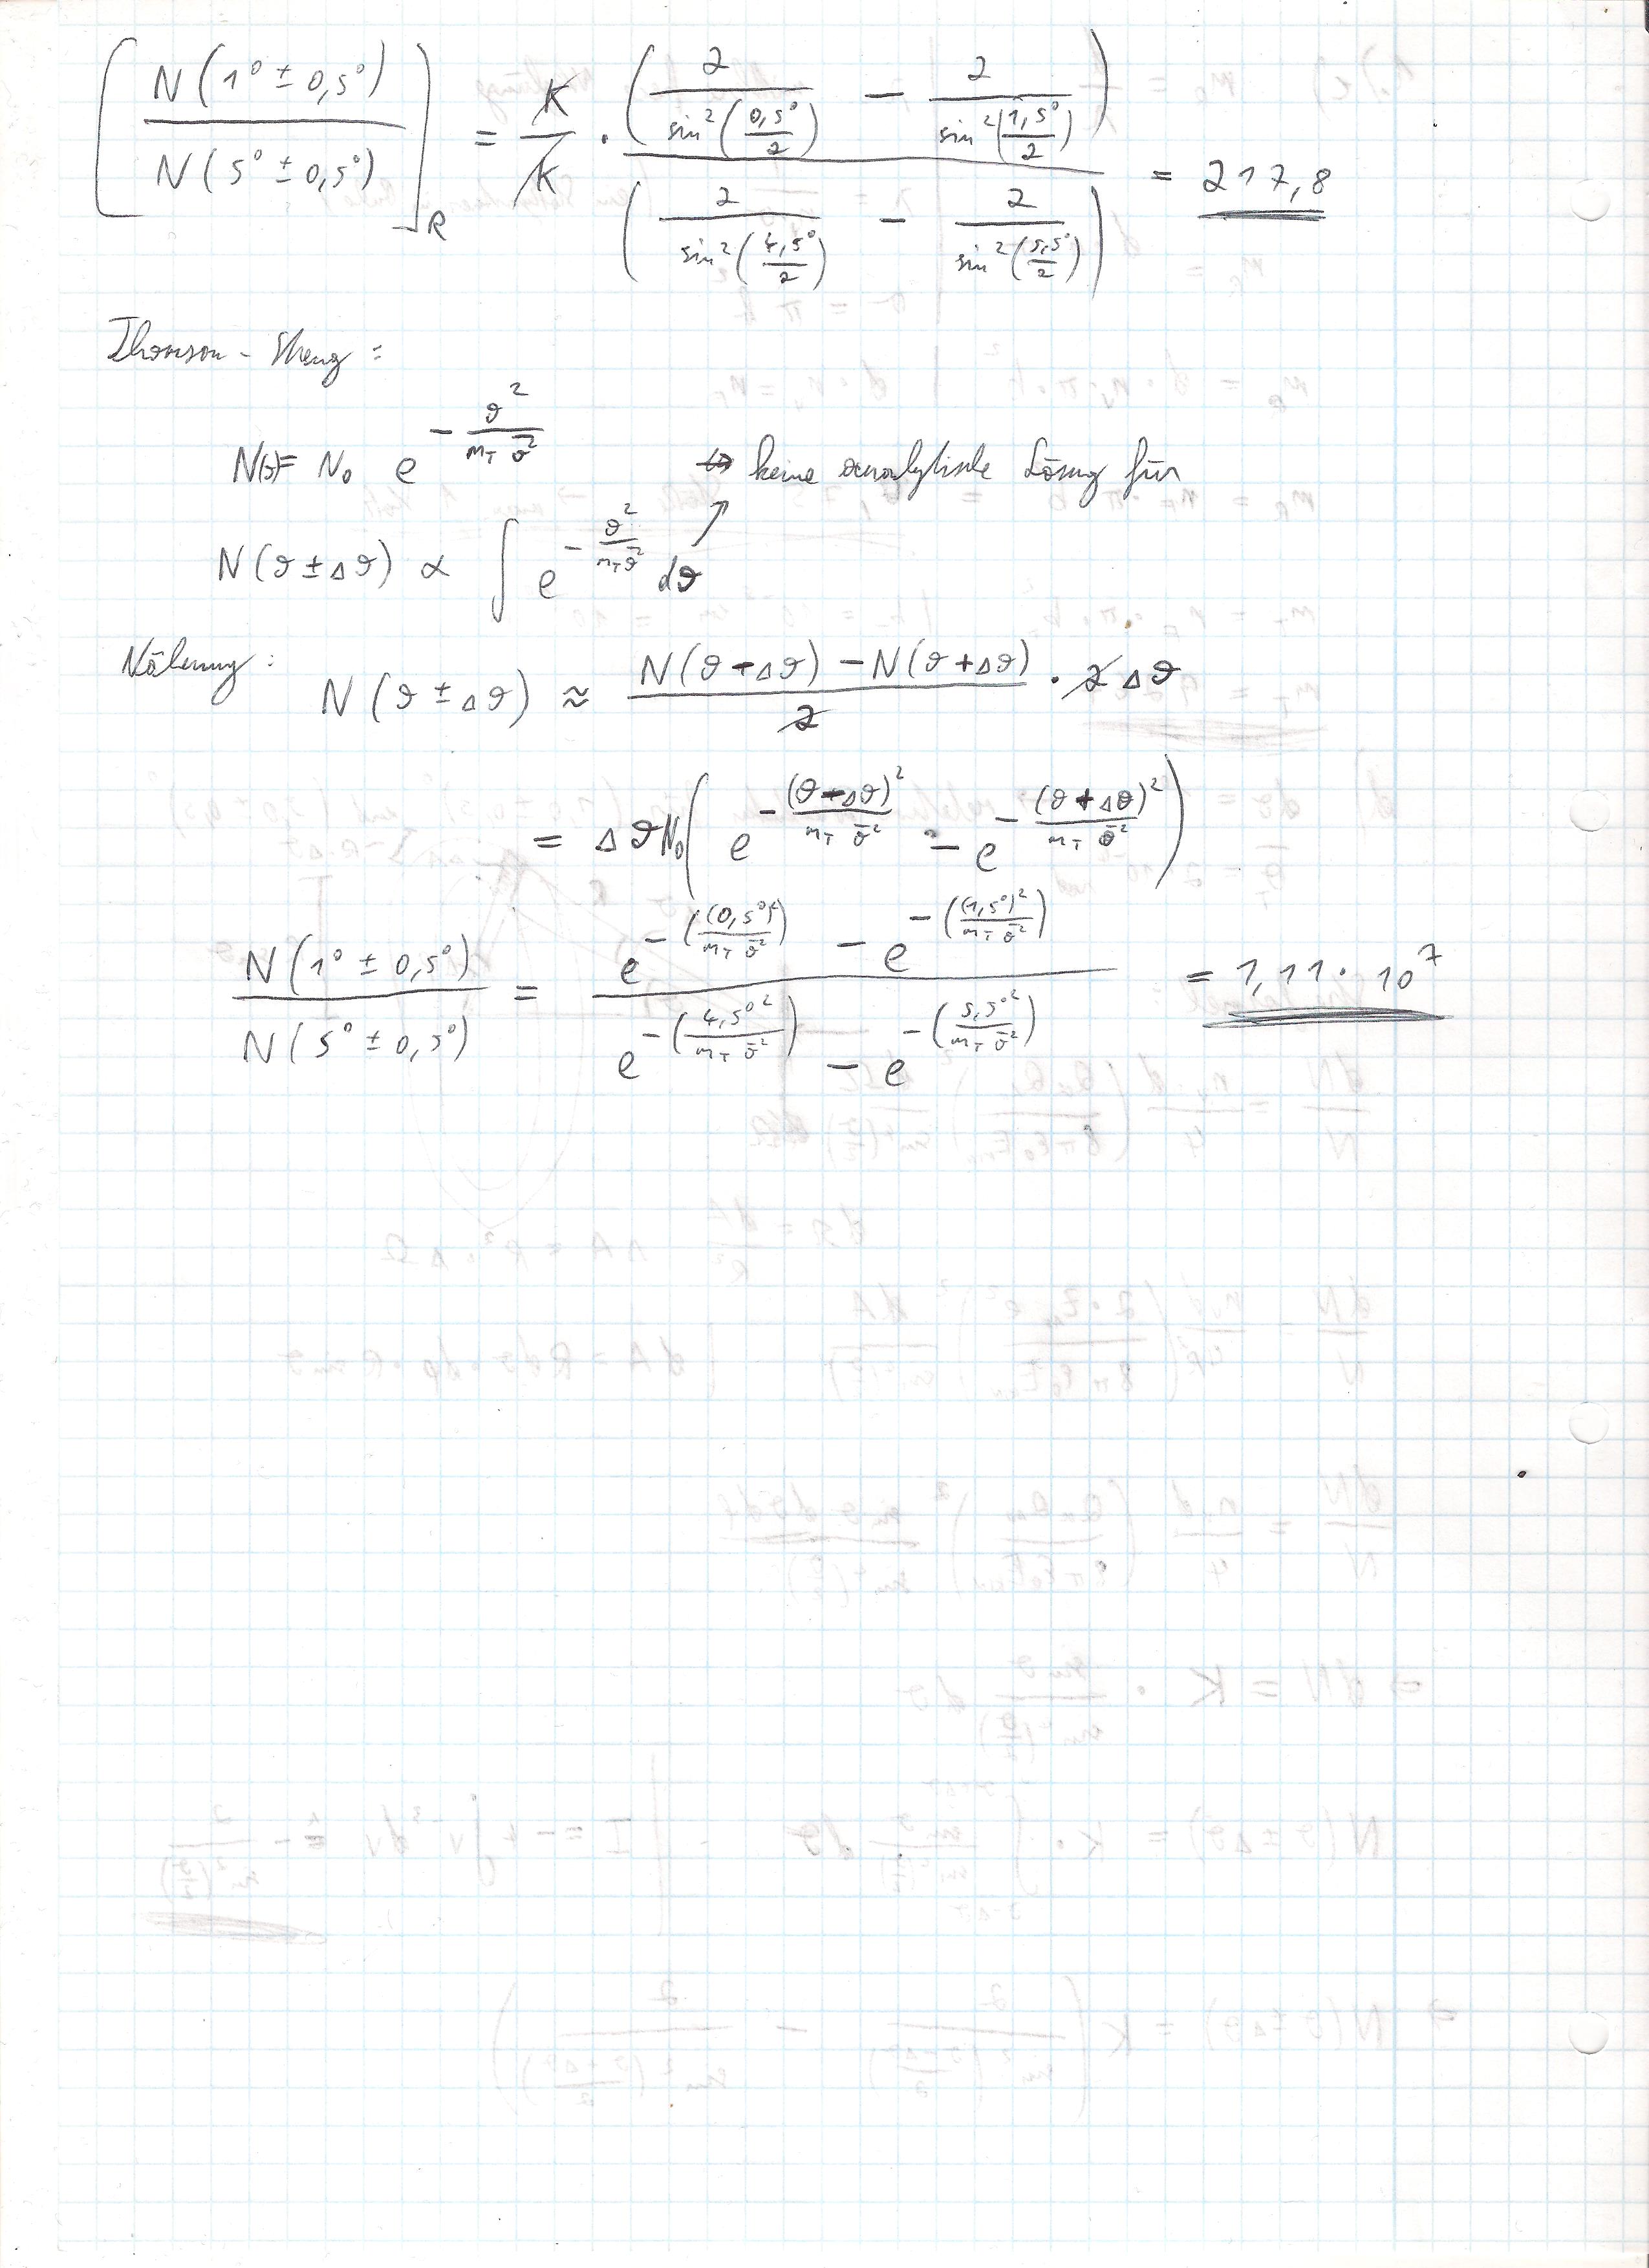 [N(1° ± 0,5°) / N(5° ± 0,5°)]_R = K/K · (2/sin²(0,5°/2) − 2/sin²(1,5°/2)) / (2/sin²(4,5°/2) − 2/sin²(5,5°/2)) = 217,8
Thomson - Streug :
N(ϑ) = N₀ e^(−ϑ²/(m_T ϑ̄²)) ↔ keine analytische Lösung für
N(ϑ ± Δϑ) ∝ ∫ e^(−ϑ²/(m_T ϑ̄²)) dϑ ↗
Näherung :
N(ϑ ± Δϑ) ≈ (N(ϑ − Δϑ) − N(ϑ + Δϑ))/2 · 2 Δϑ
= Δϑ N₀ (e^(−(ϑ − Δϑ)²/(m_T ϑ̄²)) − e^(−(ϑ + Δϑ)²/(m_T ϑ̄²)))
N(1° ± 0,5°) / N(5° ± 0,5°) = (e^(−((0,5°)²/(m_T ϑ̄²))) − e^(−((1,5°)²/(m_T ϑ̄²)))) / (e^(−(4,5°²/(m_T ϑ̄²))) − e^(−(5,5°²/(m_T ϑ̄²)))) = 1,11 · 10⁷